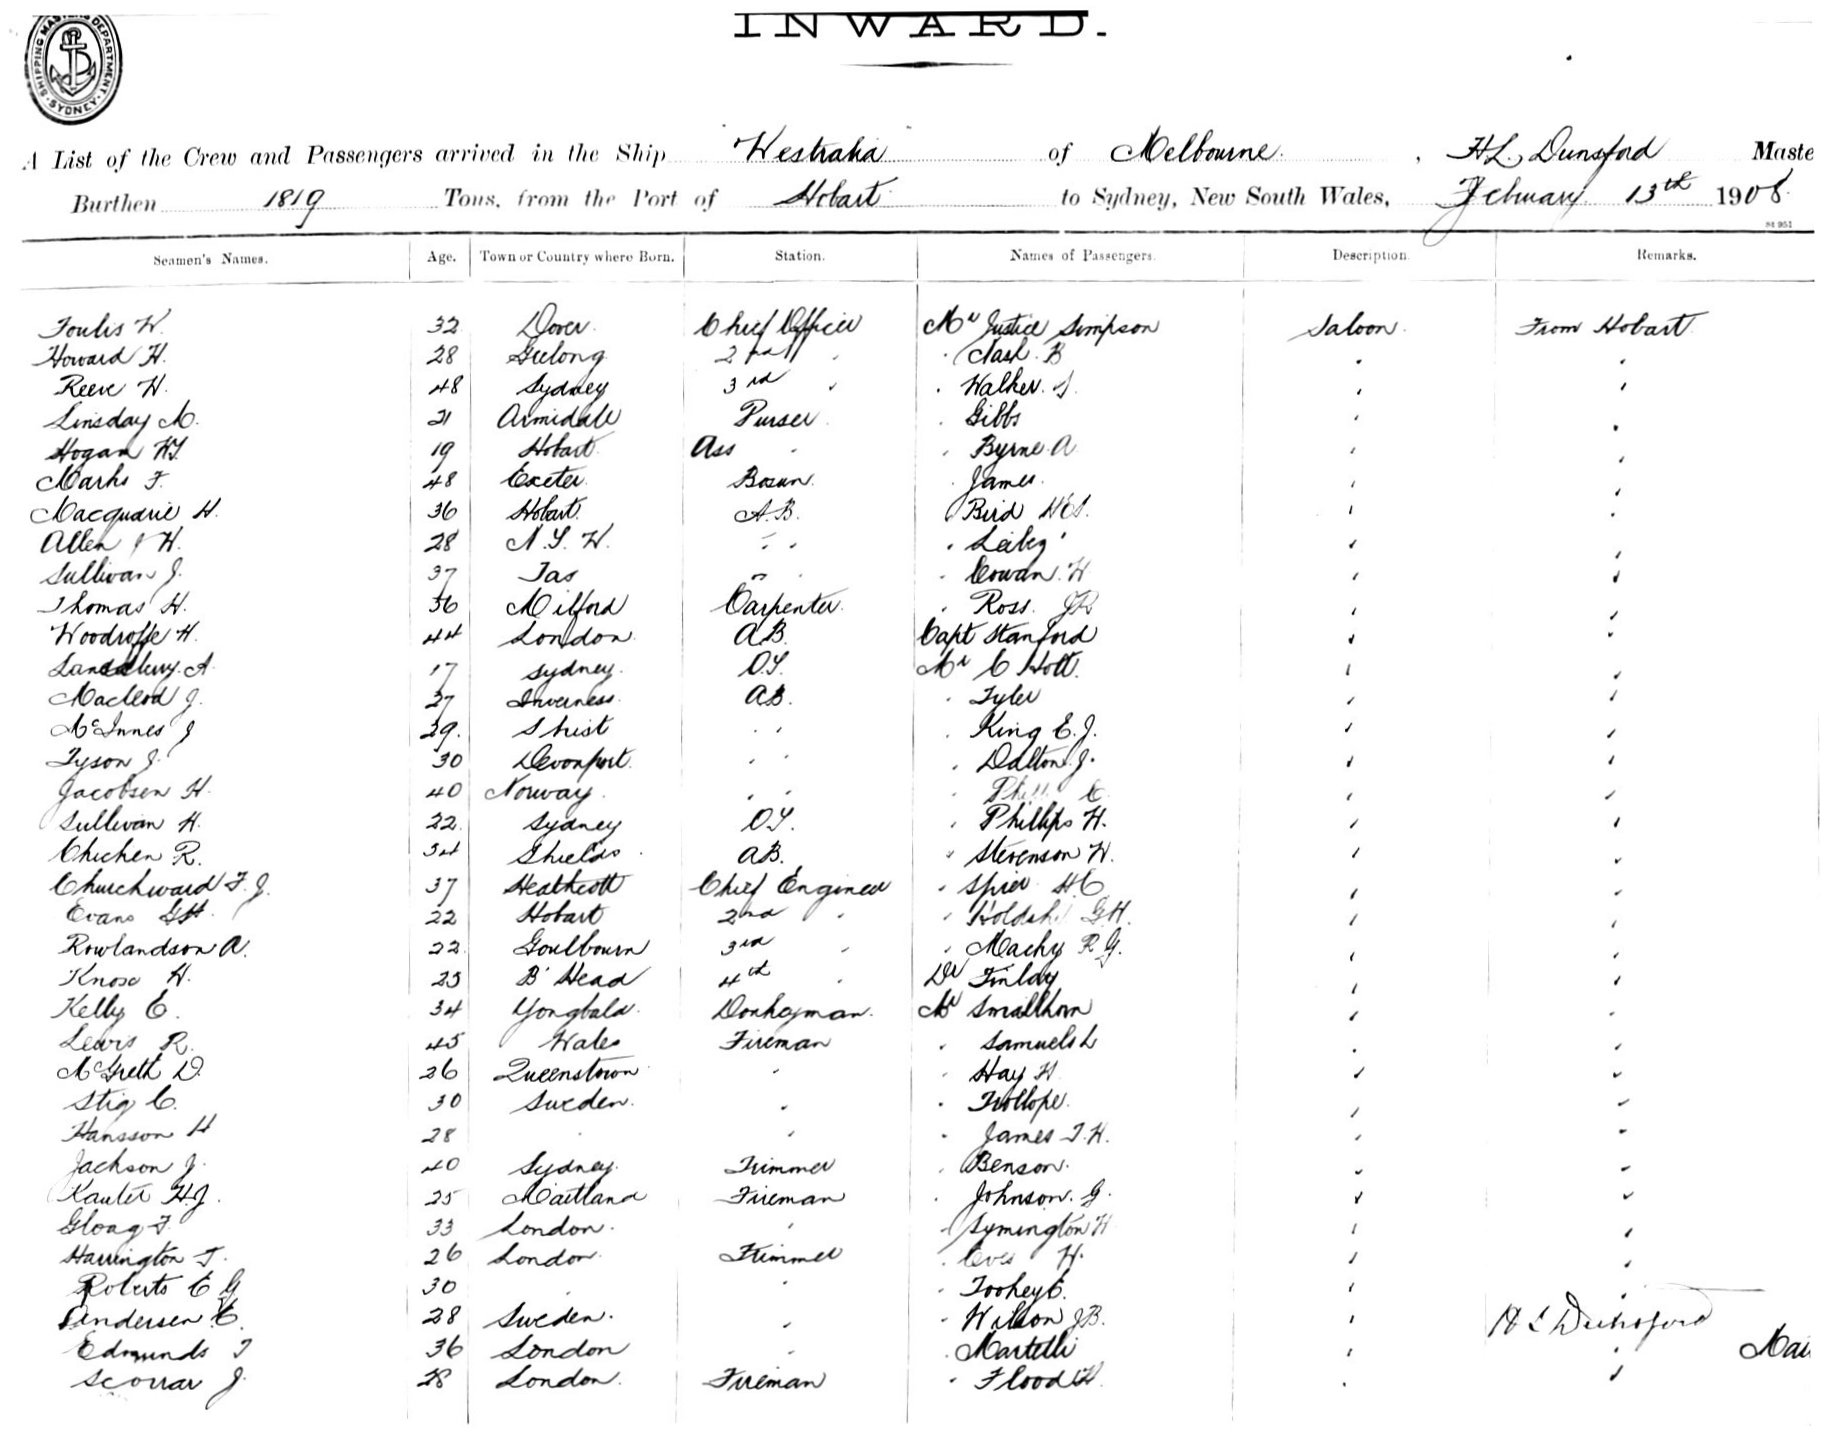 INWARD.
SHIPPING MASTERS DEPARTMENT SYDNEY
A List of the Crew and Passengers arrived in the Ship Westralia of Melbourne, H L Dunsford Maste
Burthen 1819 Tons, from the Port of Hobart to Sydney, New South Wales, February 13th 1908
Seamen's Names. Age. Town or Country where Born. Station. Names of Passengers. Description. Remarks.
Foulis W. 32 Dover Chief Officer Mr Justice Simpson Saloon From Hobart
Howard H. 28 Geelong 2nd " " Nash B " "
Reeve W. 48 Sydney 3rd " " Walker S. " "
Linsday M. 21 Armidale Purser " Gibbs " "
Hogan 19 Hobart Ass " " Byrne A " "
Marks F. 48 Exeter Bosun " James " "
Macquarie H. 36 Hobart A.B. " Bird " "
Allen J H. 28 N.S.W. " " " " "
Sullivan J. 37 Tas " " " Cowan W " "
Thomas H. 36 Milford Carpenter " Ross JR " "
Woodroffe H. 44 London A.B. Capt Stanford " "
A. 17 Sydney O.S. Mr C Holt " "
Macleod J. 27 Inverness A.B. " Tyler " "
McInnes J 29 " " " King E.J. " "
Tyson J. 30 Devonport " " " Dalton J. " "
Jacobsen H. 40 Norway " " " " "
Sullivan H. 22 Sydney O.S. " Phillips H. " "
Chicken R. 34 Shields A.B. " Stevenson W. " "
Churchward F.J. 37 Heathcott Chief Engineer " Spier H C " "
Evans 22 Hobart 2nd " " G.H. " "
Rowlandson A. 22 Goulbourn 3rd " " Machy R.G. " "
Knox H. 25 B Head 4th " Dr Finlay " "
Kelly E. 34 Donkeyman Mr Smallhorn " "
Lewis R. 45 Wales Fireman " Samuels L " "
McGreth D. 26 Queenstown " " Hay H " "
Stig C. 30 Sweden " " Trollope " "
Hansson H 28 " " " James T.H. " "
Jackson J. 40 Sydney Trimmer " Benson " "
Kauter H.J. 25 Maitland Fireman " Johnson G. " "
Gloag F 33 London " " Symington H " "
Harrington T. 26 London Trimmer " H. " "
Roberts E G 30 " " " Toohey C. " "
Andersen C. 28 Sweden " " Wilson J.B. " H L Dunsford
Edmunds T 36 London " " Martelli " "
Scorrar J. 28 London Fireman " Flood H " "